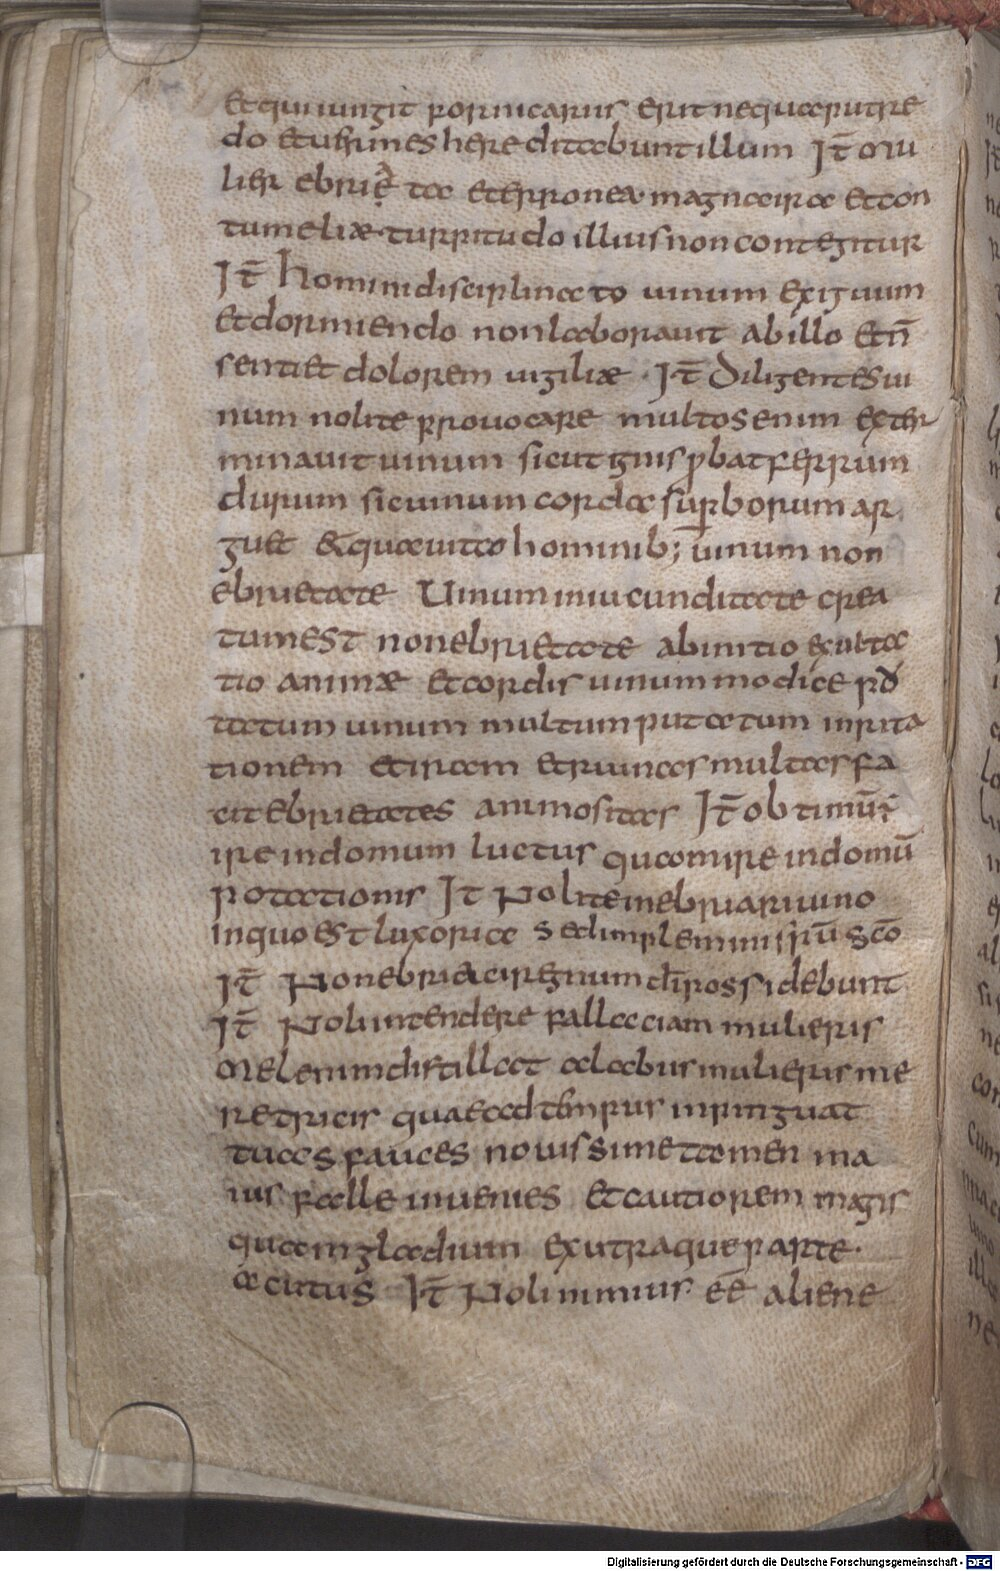 et qui iungit fornicariis erit nequa putre
do et uermes hereditabunt illum It̄ mu
lier ebrieta et erronea magna ira et con
tumeliæ turpitudo illius non contegitur
It̄ homini disciplinato uinum exiguum
et dormiendo non laborauit ab illo et n̄
sentiet dolorem uigiliæ · It̄ Diligentes ui
num nolite prouocare multos enim exter
minauit uinum sicut ignis ꝓbat ferrum
durum sic uinum corda sup̱borum ar
guet & qua uita hominib; uinum non
ebrietate Uinum in iucunditate crea
tum est non ebrietate ab initio exulta
tio animæ et cordis uinum modice po
tatum uinum multum putatum inrita
tionem et iram et ruinas multas fa
cit ebrietates animositas It̄ obtimū ē
ire in domum luctus quam ire in domū
potationis It Nolite inebriari uino
in quo est luxoria sed implemini sp̄u sc̄o
It̄ Non ebriaci regnum dī possidebunt
It̄ Noli intendere fallaciam mulieris
Mel enim distillat a labiis mulieris me
retricis quae ad tēmpus inpinguat
tuas fauces nouissime tamen ma
ius felle inuenies et cautiorem magis
quam gladium ex utraque parte ·
acutus It̄ Noli nimius eē aliene
Digitalisierung gefördert durch die Deutsche Forschungsgemeinschaft - DFG